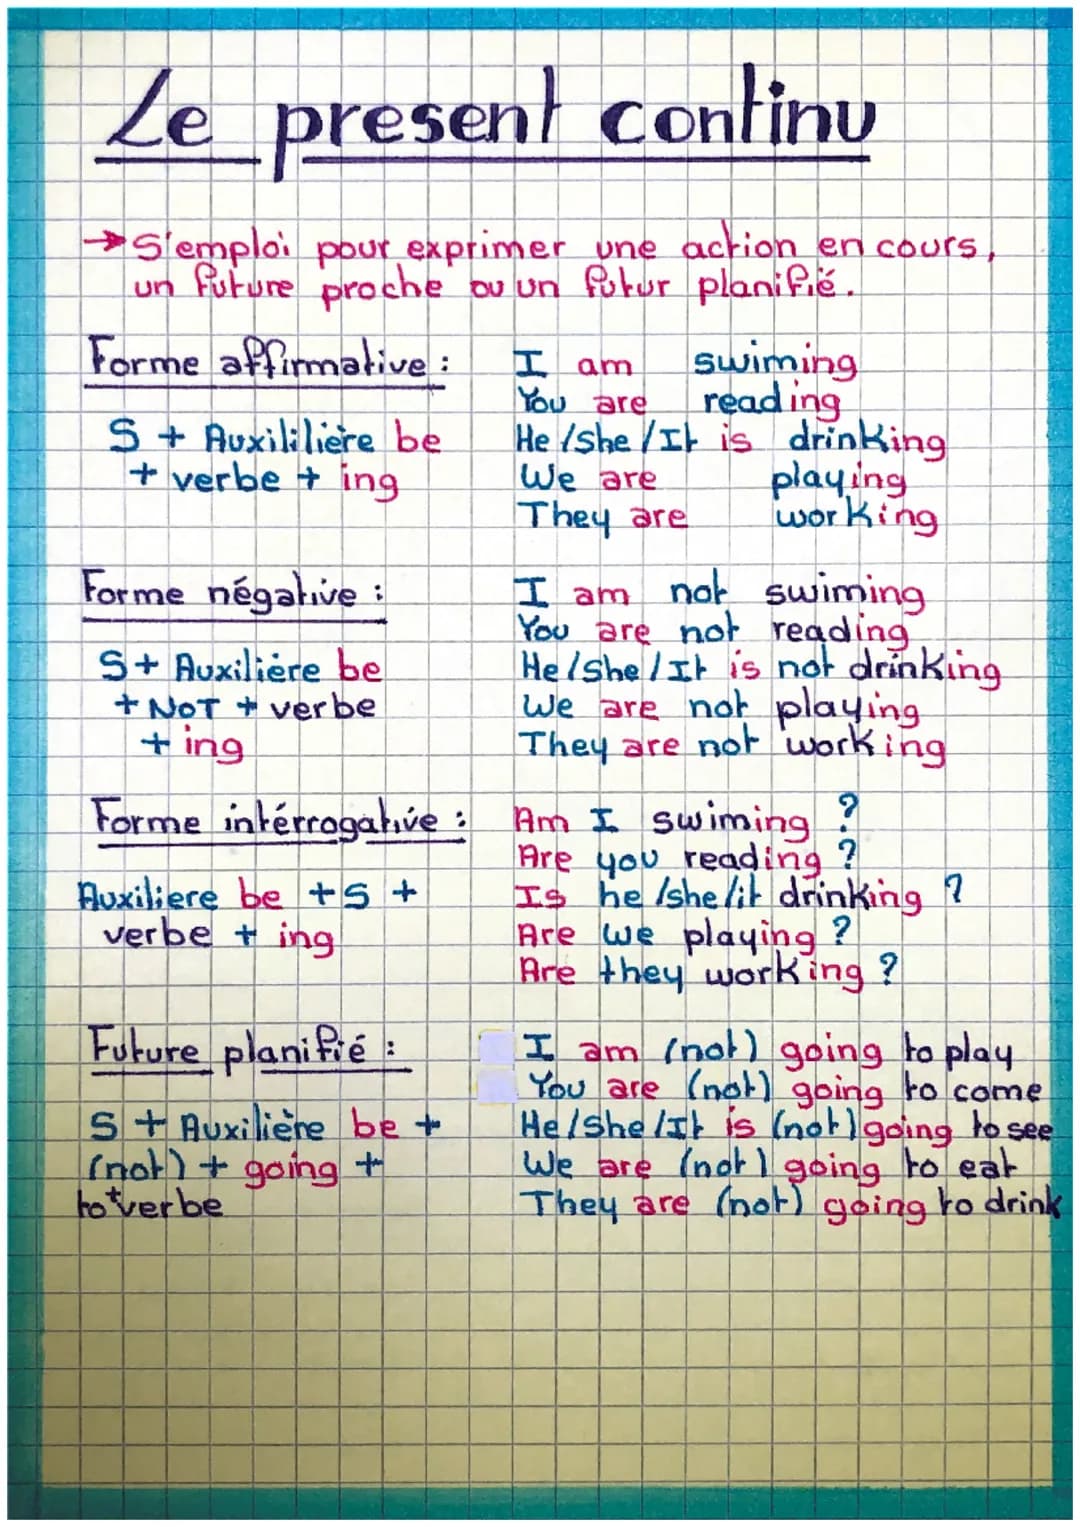 Le present continu
→ S'emploi pour exprimer une action en cours,
un future proche ou un futur planifié.
Forme affirmative :
S + Auxililière be
+ verbe + ing
I am swiming
You are reading
He /she /It is drinking
We are playing
They are working
Forme négative :
S+ Auxilière be
+ NOT + verbe
+ ing
I am not swiming
You are not reading
He/She/It is not drinking
We are not playing
They are not working
Forme intérrogative :
Auxiliere be +S +
verbe + ing
Am I swiming ?
Are you reading ?
Is he /she/it drinking ?
Are we playing ?
Are they working ?
Future planifié :
S + Auxilière be +
(not) + going +
to+verbe
I am (not) going to play
You are (not) going to come
He/She/It is (not) going to see
We are (not) going to eat
They are (not) going to drink